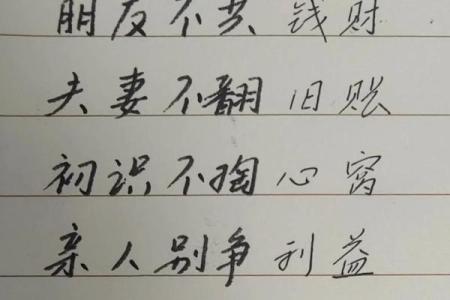 朋友不共钱财
夫妻不翻旧账
初识不掏心窝
亲人别争利益